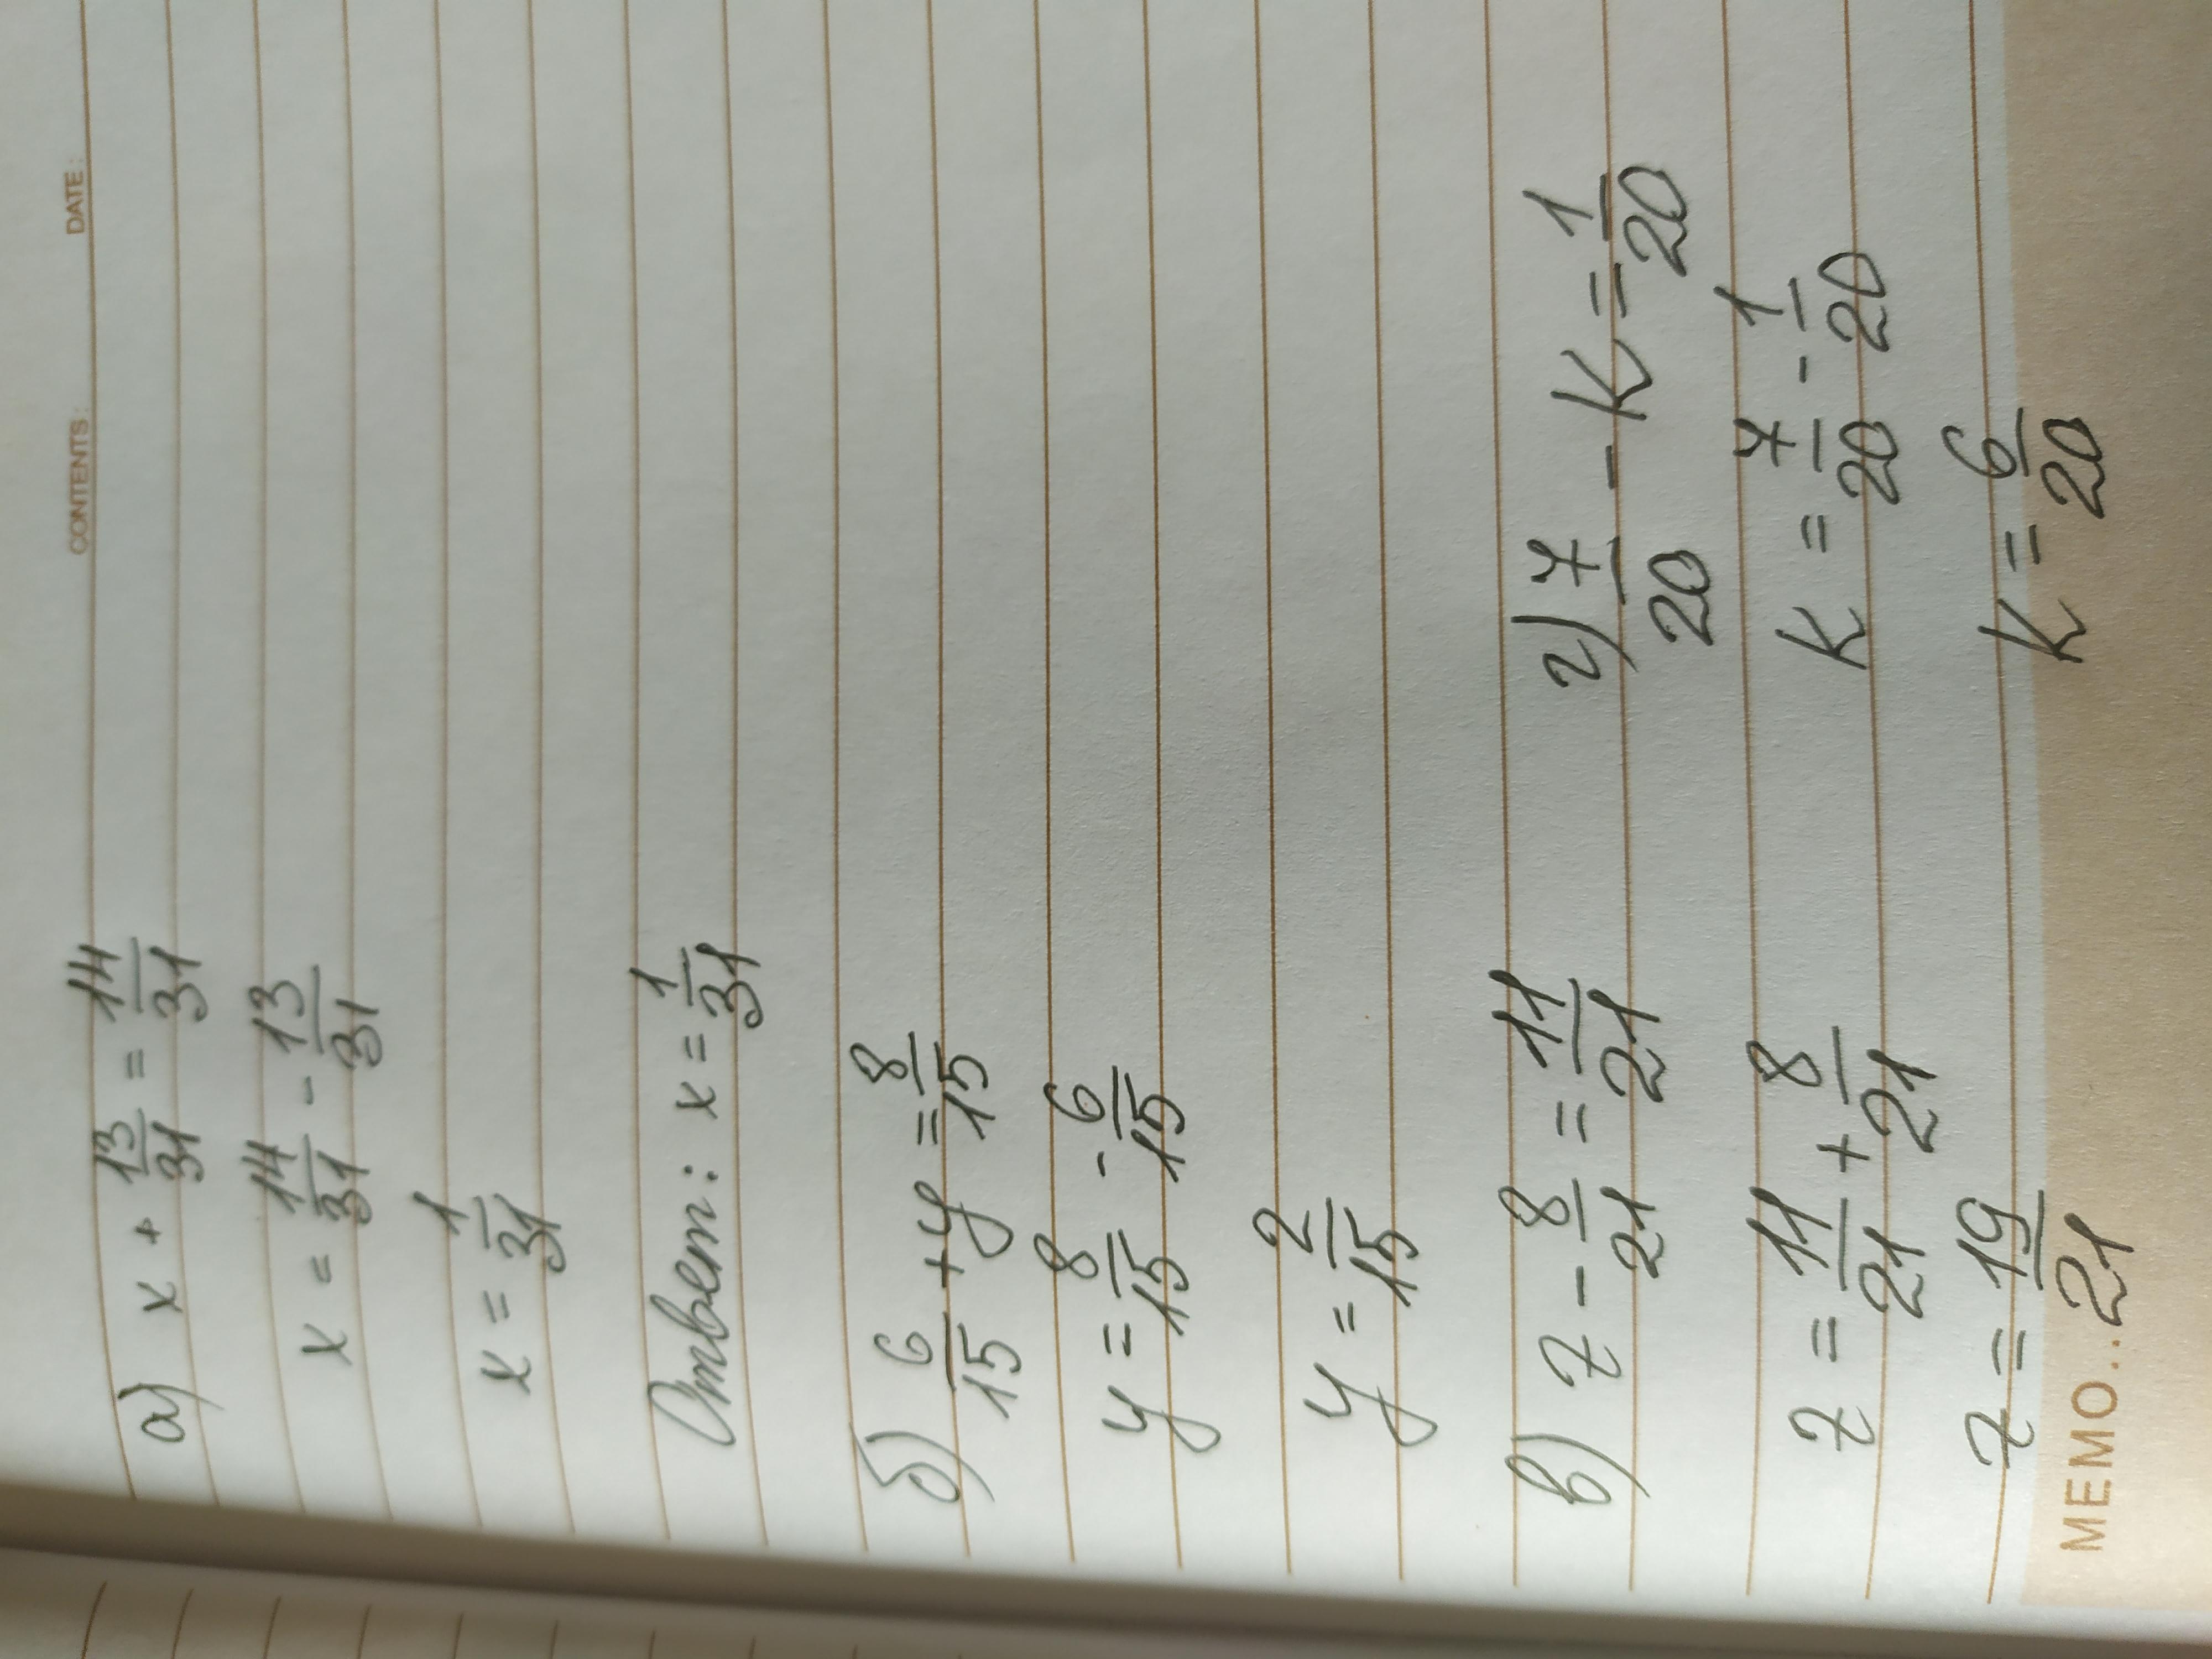 CONTENTS: DATE:
а) x + 13/31 = 14/31
x = 14/31 - 13/31
x = 1/31
Ответ: x = 1/31
б) 6/15 + y = 8/15
y = 8/15 - 6/15
y = 2/15
в) z - 8/21 = 11/21
z = 11/21 + 8/21
z = 19/21
г) 7/20 - K = 1/20
K = 7/20 - 1/20
K = 6/20
MEMO..